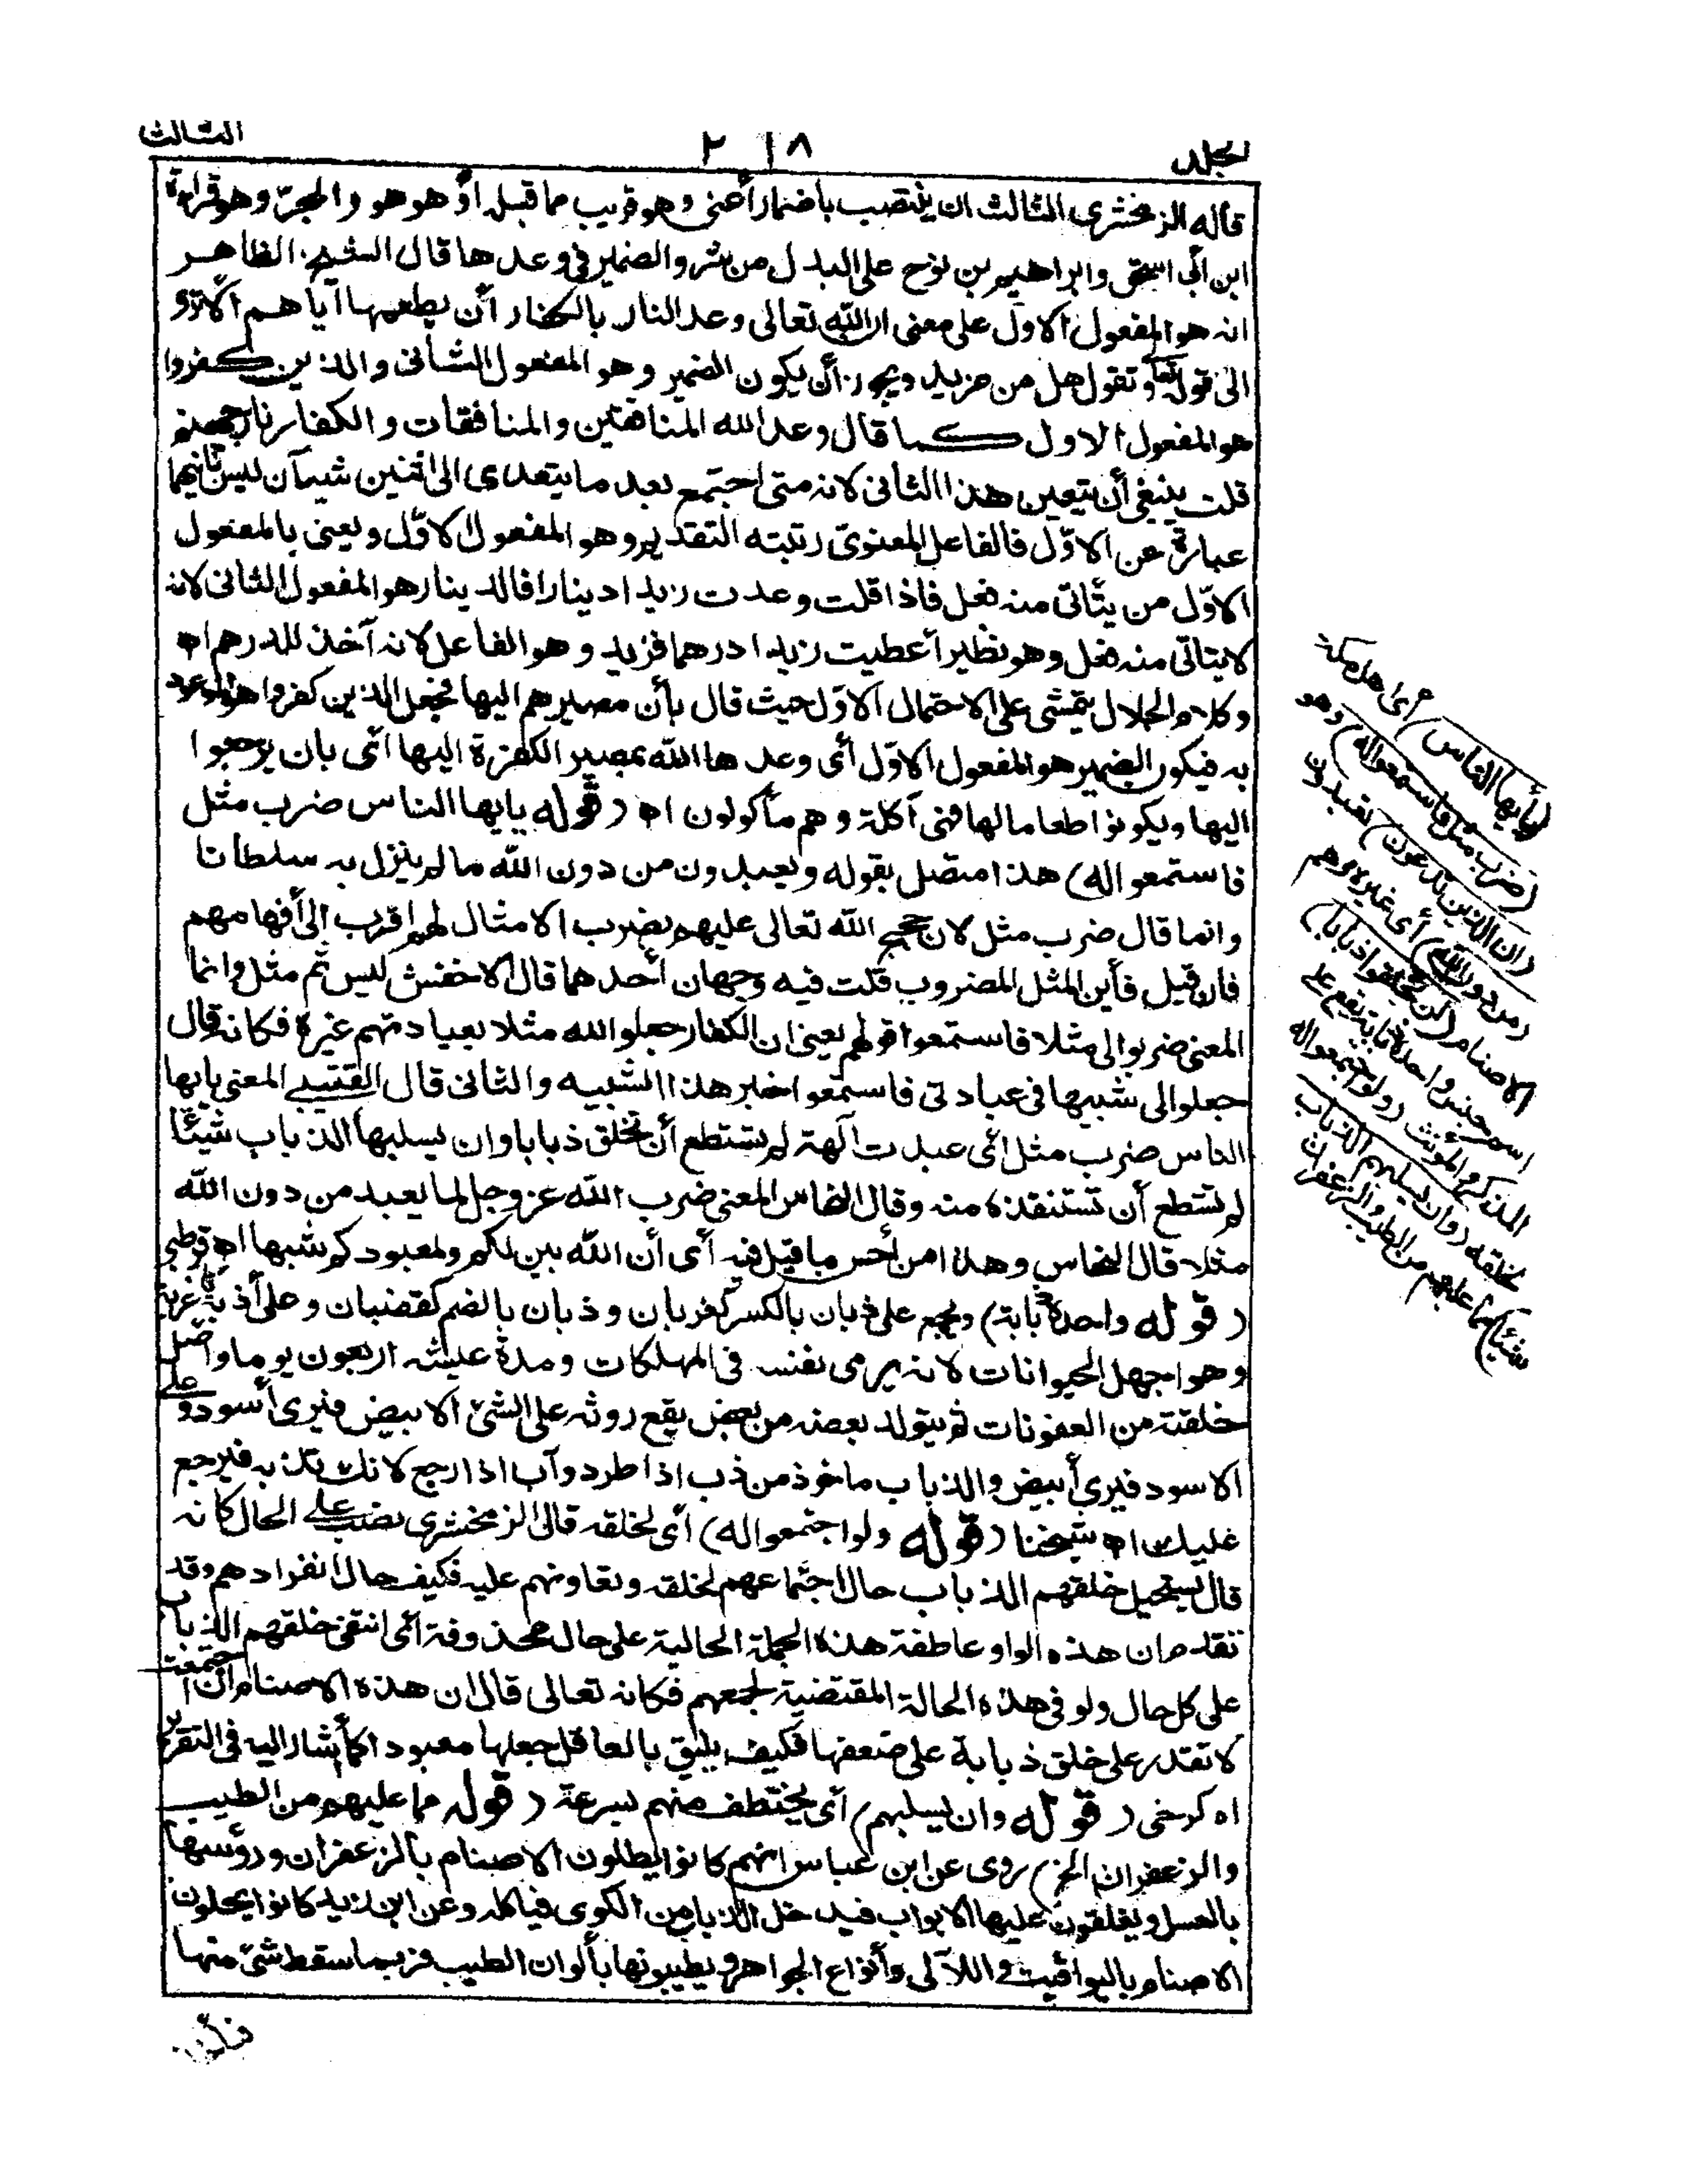 الجلد
٢١٨
الثالث
قاله الزمخشرى الثالث ان ينتصب باضمار أعنى وهو قريب مما قبله او هو هو والجرّ وهو قراءة
ابن أبى اسحق وابراهيم بن نوح على البدل من بشر والضمير فى وعدها قال الشيخ الظاهر
انه هو المفعول الاول على معنى ان الله تعالى وعد النار بالكفار أن يطعمها اياهم ألا ترى
الى قوله تعالى وتقول هل من مزيد ويجوز أن يكون الضمير وهو المفعول الثانى والذين كفروا
هو المفعول الاول كما قال وعد الله المنافقين والمنافقات والكفار نار جهنم
قلت ينبغى أن يتعين هذا الثانى لانه متى اجتمع بعد ما يتعدى الى اثنين شيآن ليس ثانيهما
عبارة عن الاوّل فالفاعل المعنوىّ رتبته التقديم وهو المفعول الاوّل ويعنى بالمفعول
الاوّل من يتأتى منه فعل فاذا قلت وعدت زيدا دينارا فالدينار هو المفعول الثانى لانه
لا يتأتى منه فعل وهو نظير أعطيت زيدا درهما فزيد وهو الفاعل لانه آخذ للدرهم اه
وكلام الجلال يتمشى على الاحتمال الاوّل حيث قال بأن مصيرهم اليها فجعل الذين كفروا هو الموعود
به فيكون الضمير هو المفعول الاوّل أى وعدها الله بمصير الكفرة اليها أى بان يرجعوا
اليها ويكونوا طعاما لها فهى آكلة وهم مأكولون اه (قوله يايها الناس ضرب مثل
فاستمعوا له) هذا متصل بقوله ويعبدون من دون الله ما لم ينزل به سلطانا
وانما قال ضرب مثل لان حجج الله تعالى عليهم بضرب الامثال لهم اقرب الى أفهامهم
فان قيل فأين المثل المضروب قلت فيه وجهان أحدهما قال الاخفش ليس ثم مثل وانما
المعنى ضربوا لى مثلا فاستمعوا قولهم يعنى ان الكفار جعلوا لله مثلا بعبادتهم غيره فكانه قال
جعلوا لى شبيها فى عبادتى فاستمعوا خبر هذا الشبيه والثانى قال القتيبى المعنى يايها
الناس ضرب مثل أى عبدت آلهة لم تستطع أن تخلق ذبابا وان يسلبها الذباب شيئا
لم تستطع أن تستنقذه منه وقال النحاس المعنى ضرب الله عز وجل لما يعبد من دون الله
مثلا قال النحاس وهذا من أحسن ما قيل فيه أى أن الله بين لكم ولمعبودكم شبها اه قرطبى
(قوله واحده ذبابة) ويجمع على ذبان بالكسر كغربان وذبان بالضم كقضبان وعلى أذبة كأغربة
وهو اجهل الحيوانات لانه يرمى نفسه فى المهلكات ومدة عيشه اربعون يوما واصل
خلقته من العفونات ثم يتولد بعضه من بعض يقع روثه على الشئ الابيض فيرى أسود وعلى
الاسود فيرى أبيض والذباب ماخوذ من ذب اذا طرد وآب اذا رجع لانك تذبه فيرجع
عليك اه شيخنا (قوله ولو اجتمعوا له) أى لخلقه قال الزمخشرى نصب على الحال كانه
قال يستحيل خلقهم الذباب حال اجتماعهم لخلقه وتعاونهم عليه فكيف حال انفرادهم وقد
تقدم ان هذه الواو عاطفة هذه الجملة الحالية على حال محذوفة أى انتفى خلقهم الذباب
على كل حال ولو فى هذه الحالة المقتضية لجمعهم فكانه تعالى قال ان هذه الاصنام ان اجتمعت
لا تقدر على خلق ذبابة على ضعفها فكيف يليق بالعاقل جعلها معبودا كما أشار اليه فى التقرير
اه كرخى (قوله وان يسلبهم) أى يختطف منهم بسرعة (قوله مما عليهم من الطيب
والزعفران الخ) روى عن ابن عباس انهم كانوا يطلون الاصنام بالزعفران ورؤسها
بالعسل ويغلقون عليها الابواب فيدخل الذباب من الكوى فياكله وعن ابن زيد كانوا يحلون
الاصنام باليواقيت واللآلى وأنواع الجواهر ويطيبونها بألوان الطيب فربما سقط شئ منها
(يأيها الناس) أى اهل مكة
(ضرب مثل فاستمعوا له) وهو
(ان الذين تدعون) تعبدون
(من دون الله) أى غيره وهم
الاصنام (لن يخلقوا ذبابا)
اسم جنس واحده ذبابة يقع على
المذكر والمؤنث (ولو اجتمعوا له)
لخلقه (وان يسلبهم الذباب
شيئا) مما عليهم من الطيب والزعفران